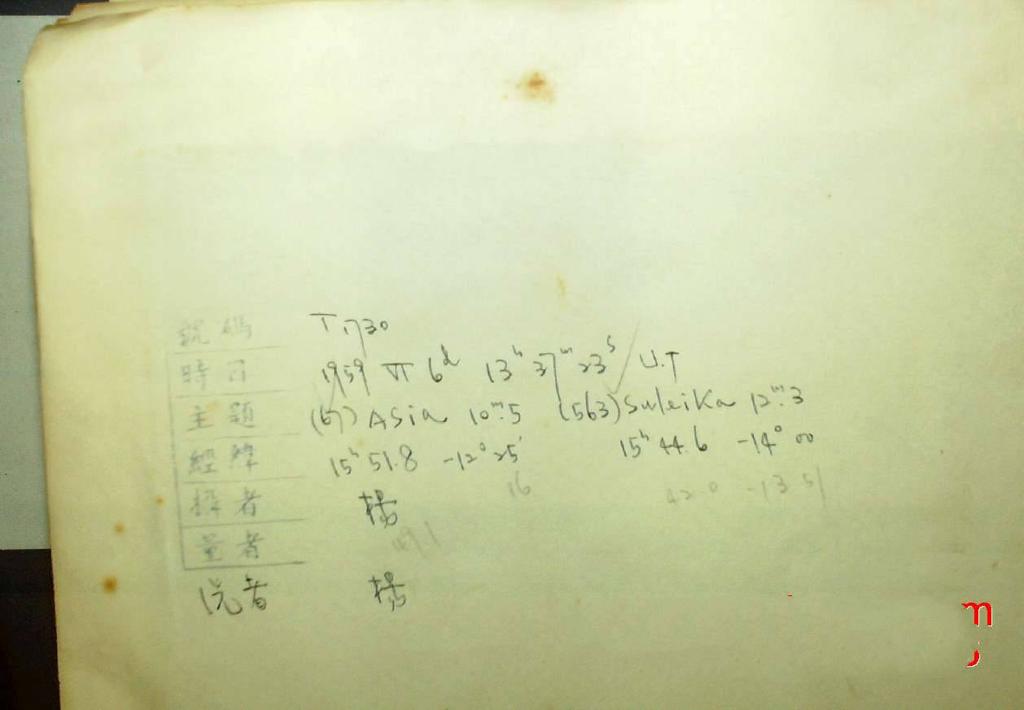 號碼 T1730
時日 1959 VI 6d 13h 37m 23s U.T
主題 (67) Asia 10m.5 (563) Suleika 12m.3
經緯 15h 51.8 -12° 25' 15h 44.6 -14° 00
16 42.0 -13 51
攝者 楊
量者
楊
m